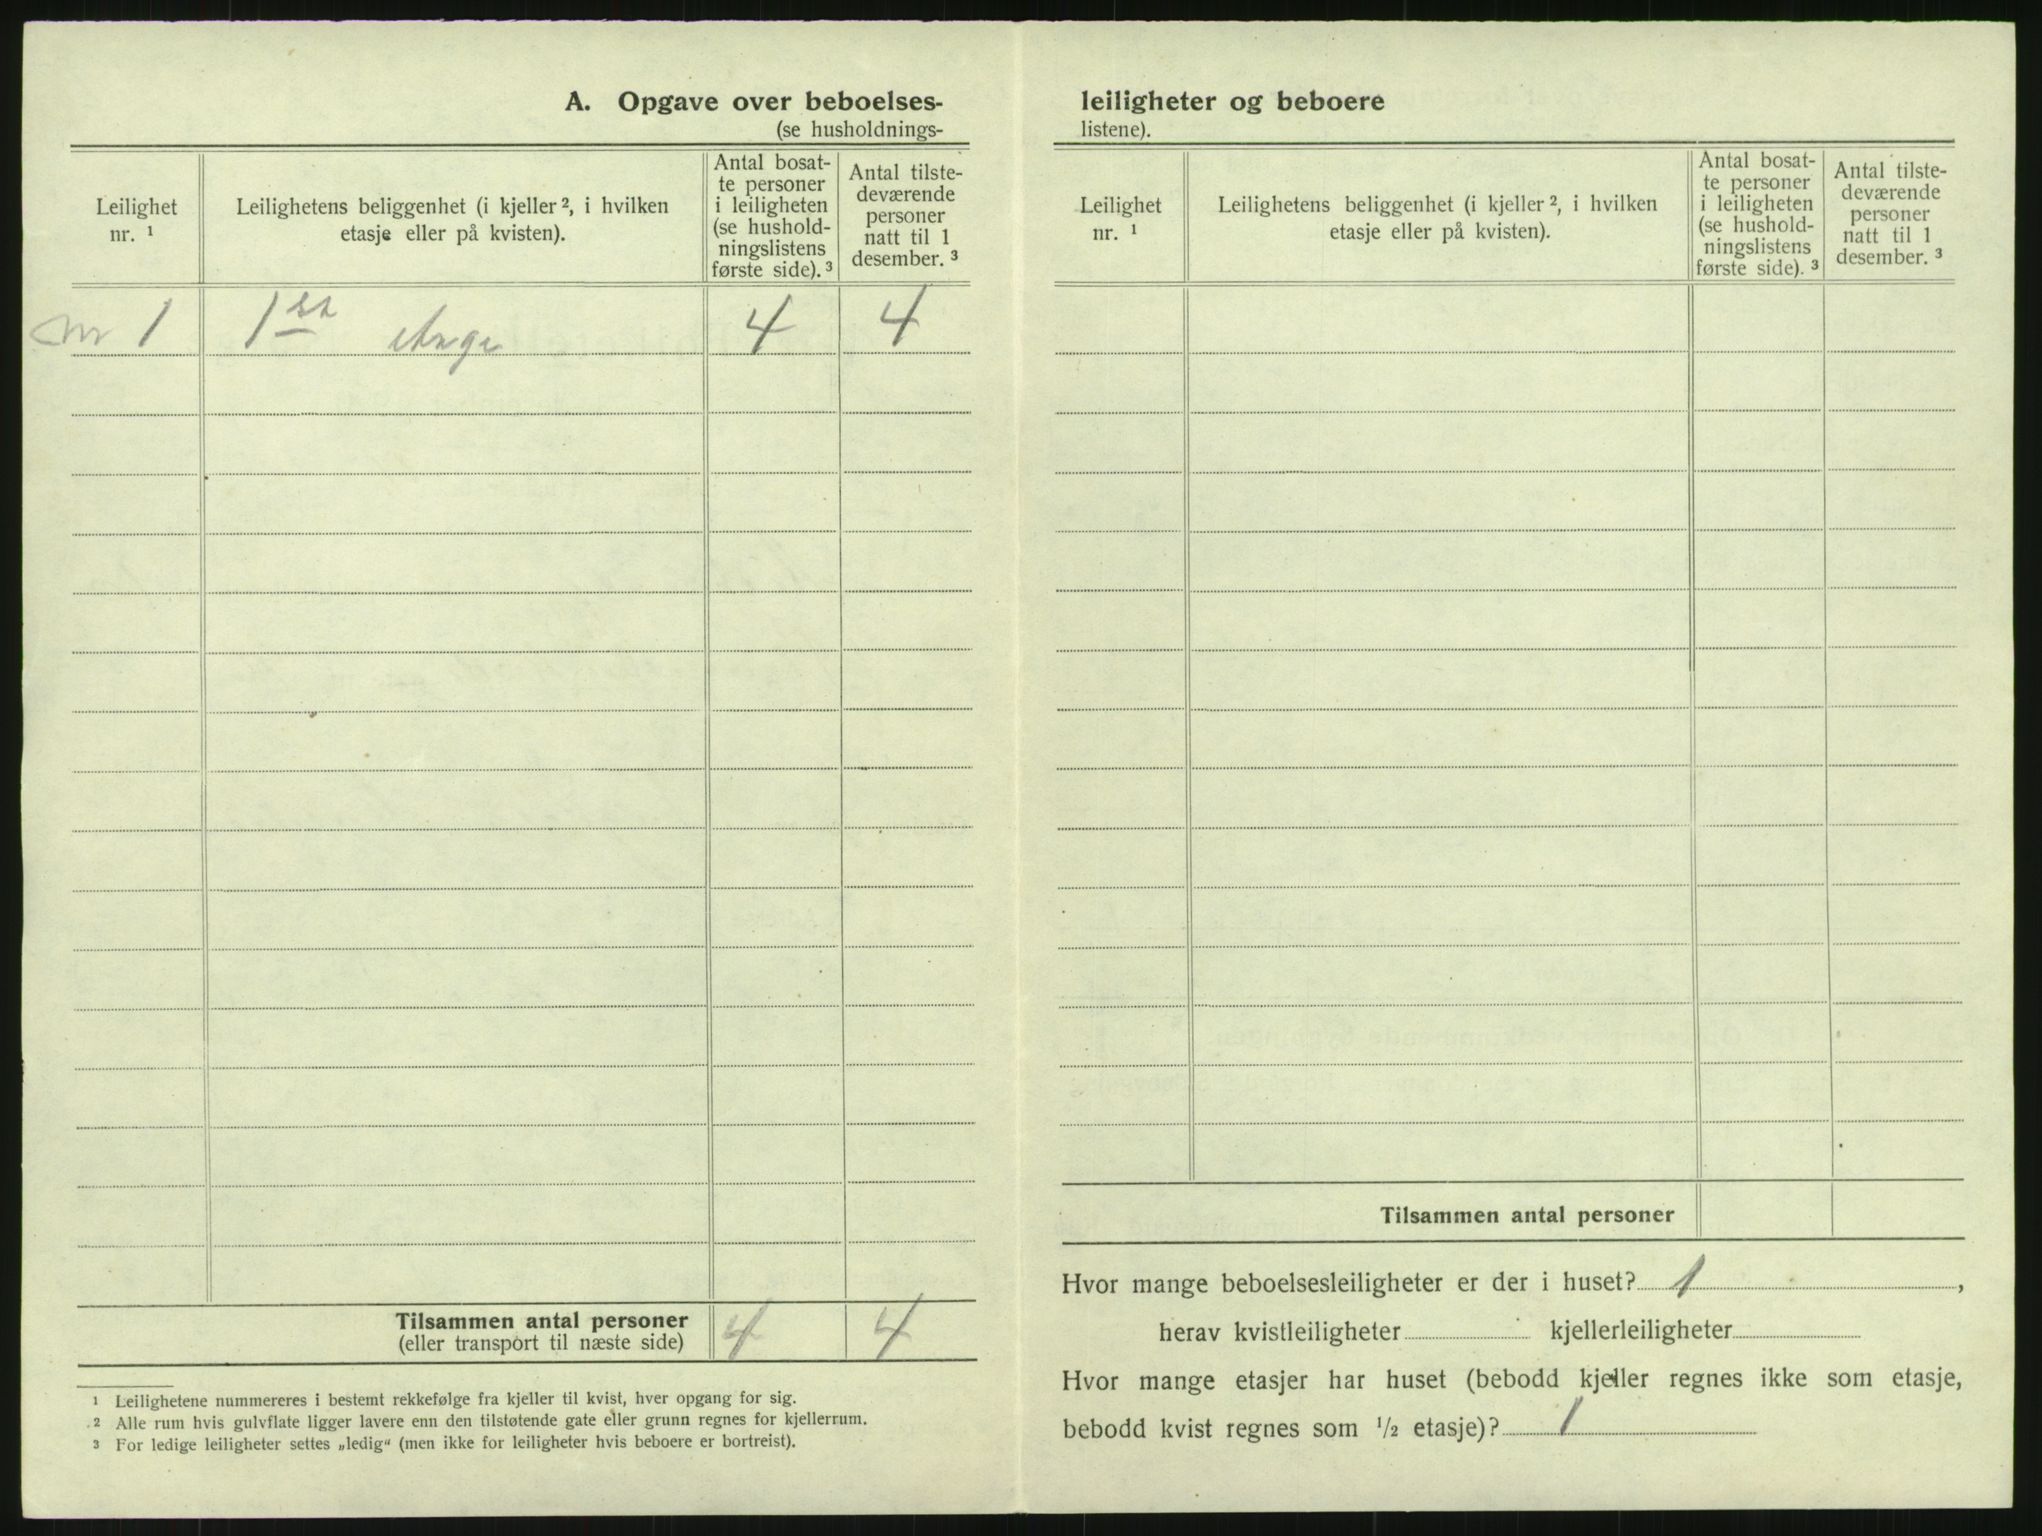 A. Opgave over beboelses-
(se husholdnings-
Leilighet nr. ¹
Leilighetens beliggenhet (i kjeller ², i hvilken etasje eller på kvisten).
Antal bosat-
te personer
i leiligheten
(se hushold-
ningslistens
første side). ³
Antal tilste-
deværende
personer
natt til 1
desember. ³
Nr 1 1ste 4 4
Tilsammen antal personer 4 4
(eller transport til næste side)
¹ Leilighetene nummereres i bestemt rekkefølge fra kjeller til kvist, hver opgang for sig.
² Alle rum hvis gulvflate ligger lavere enn den tilstøtende gate eller grunn regnes for kjellerrum.
³ For ledige leiligheter settes „ledig“ (men ikke for leiligheter hvis beboere er bortreist).
leiligheter og beboere
listene).
Leilighet nr. ¹
Leilighetens beliggenhet (i kjeller ², i hvilken etasje eller på kvisten).
Antal bosat-
te personer
i leiligheten
(se hushold-
ningslistens
første side). ³
Antal tilste-
deværende
personer
natt til 1
desember. ³
Tilsammen antal personer
Hvor mange beboelsesleiligheter er der i huset? 1 ,
herav kvistleiligheter kjellerleiligheter
Hvor mange etasjer har huset (bebodd kjeller regnes ikke som etasje,
bebodd kvist regnes som ½ etasje)? 1